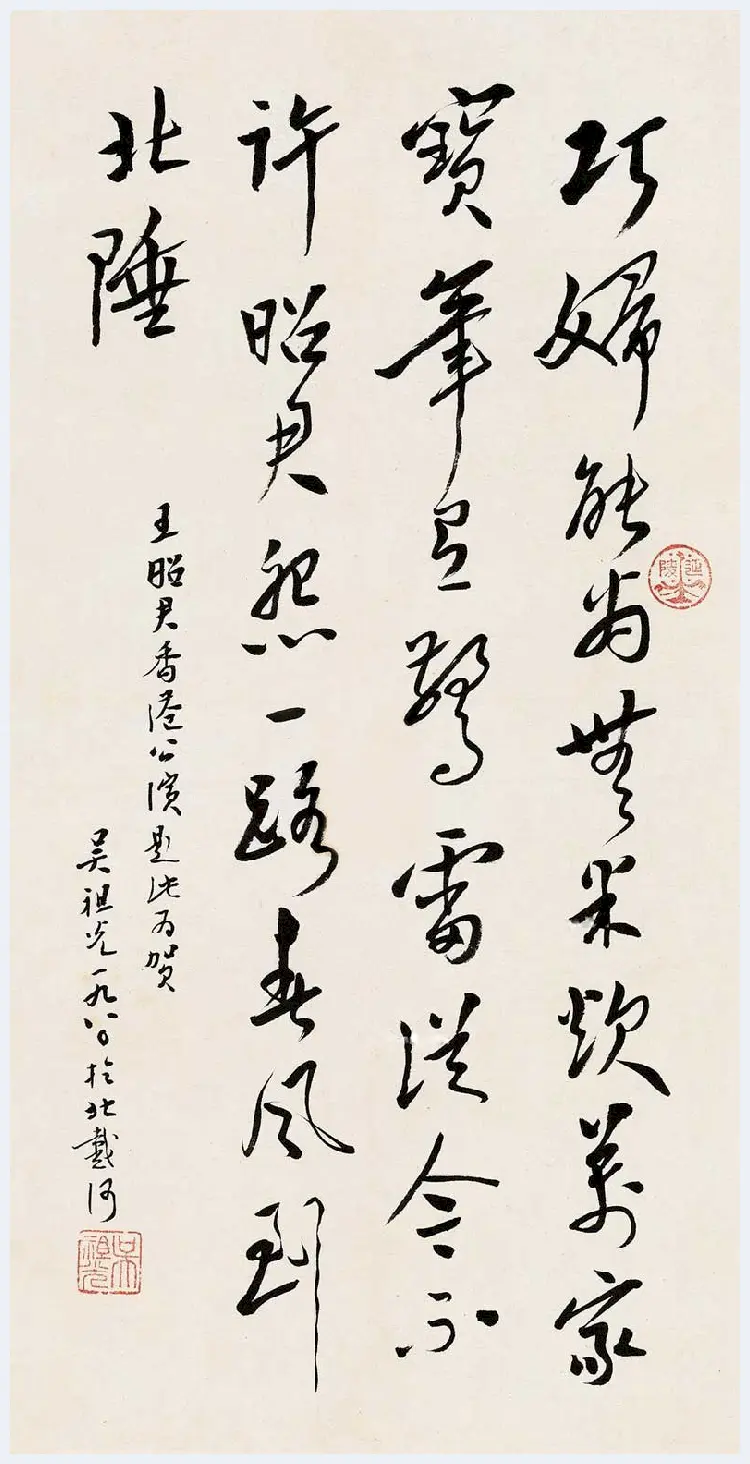 巧婦能为無米炊萬家
寶筆君驚雷從今不
許昭君怨一路春风到
北陲
王昭君香港公演題此为贺
吴祖光一九八〇於北戴河
吴祖光